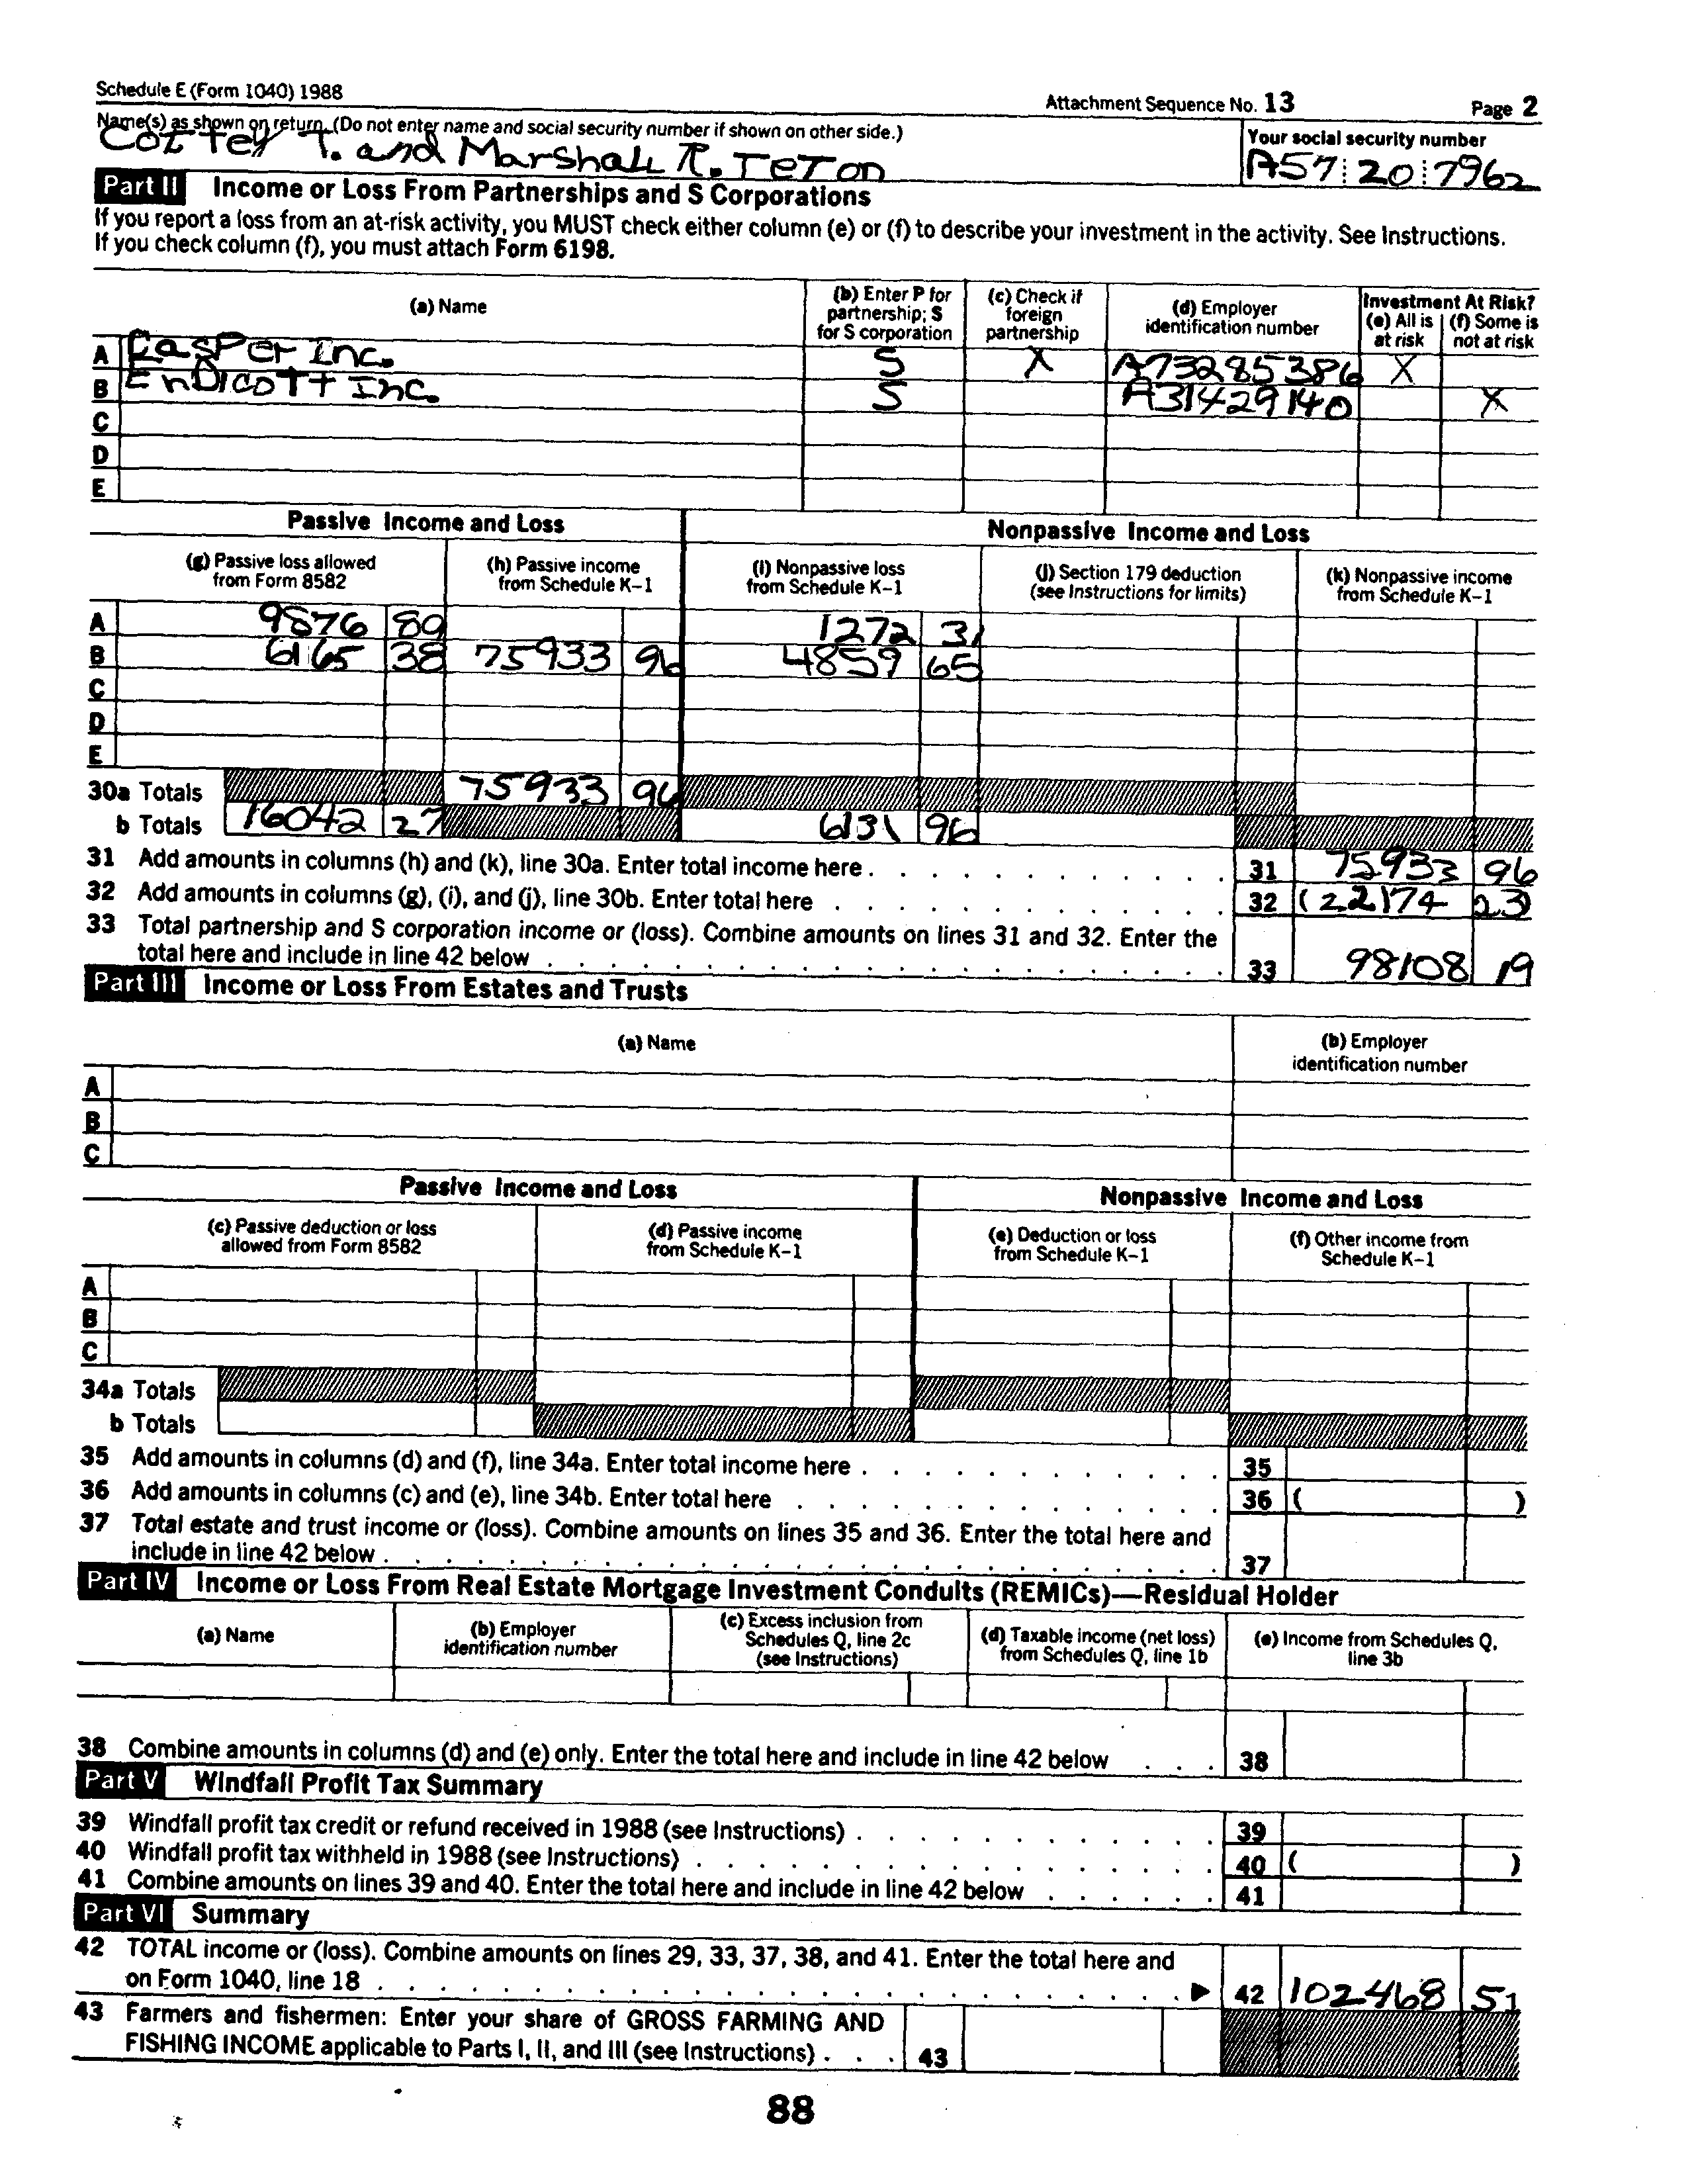 Schedule E (Form 1040) 1988 Attachment Sequence No. 13 Page 2
Name(s) as shown on return. (Do not enter name and social security number if shown on other side.) Your social security number
T. and Marshall R. Teton A57 20 7962
Part II Income or Loss From Partnerships and S Corporations
If you report a loss from an at-risk activity, you MUST check either column (e) or (f) to describe your investment in the activity. See Instructions.
If you check column (f), you must attach Form 6198.
(a) Name (b) Enter P for partnership; S for S corporation (c) Check if foreign partnership (d) Employer identification number Investment At Risk? (e) All is at risk (f) Some is not at risk
A Casper Inc. S X A73285386 X
B Endicott Inc. S A31429140 X
C
D
E
Passive Income and Loss Nonpassive Income and Loss
(g) Passive loss allowed from Form 8582 (h) Passive income from Schedule K-1 (i) Nonpassive loss from Schedule K-1 (j) Section 179 deduction (see Instructions for limits) (k) Nonpassive income from Schedule K-1
A 9876 89 1272 31
B 6165 38 75933 96 4859 65
C
D
E
30a Totals 75933 96
b Totals 16042 27 6131 96
31 Add amounts in columns (h) and (k), line 30a. Enter total income here . 31 75933 96
32 Add amounts in columns (g), (i), and (j), line 30b. Enter total here 32 (22174 23)
33 Total partnership and S corporation income or (loss). Combine amounts on lines 31 and 32. Enter the
total here and include in line 42 below 33 98108 19
Part III Income or Loss From Estates and Trusts
(a) Name (b) Employer identification number
A
B
C
Passive Income and Loss Nonpassive Income and Loss
(c) Passive deduction or loss allowed from Form 8582 (d) Passive income from Schedule K-1 (e) Deduction or loss from Schedule K-1 (f) Other income from Schedule K-1
A
B
C
34a Totals
b Totals
35 Add amounts in columns (d) and (f), line 34a. Enter total income here . 35
36 Add amounts in columns (c) and (e), line 34b. Enter total here 36 ( )
37 Total estate and trust income or (loss). Combine amounts on lines 35 and 36. Enter the total here and
include in line 42 below . 37
Part IV Income or Loss From Real Estate Mortgage Investment Conduits (REMICs)—Residual Holder
(a) Name (b) Employer identification number (c) Excess inclusion from Schedules Q, line 2c (see Instructions) (d) Taxable income (net loss) from Schedules Q, line 1b (e) Income from Schedules Q, line 3b
38 Combine amounts in columns (d) and (e) only. Enter the total here and include in line 42 below 38
Part V Windfall Profit Tax Summary
39 Windfall profit tax credit or refund received in 1988 (see Instructions) . 39
40 Windfall profit tax withheld in 1988 (see Instructions) . 40 ( )
41 Combine amounts on lines 39 and 40. Enter the total here and include in line 42 below 41
Part VI Summary
42 TOTAL income or (loss). Combine amounts on lines 29, 33, 37, 38, and 41. Enter the total here and
on Form 1040, line 18 ▶ 42 102468 51
43 Farmers and fishermen: Enter your share of GROSS FARMING AND
FISHING INCOME applicable to Parts I, II, and III (see Instructions) . 43
88